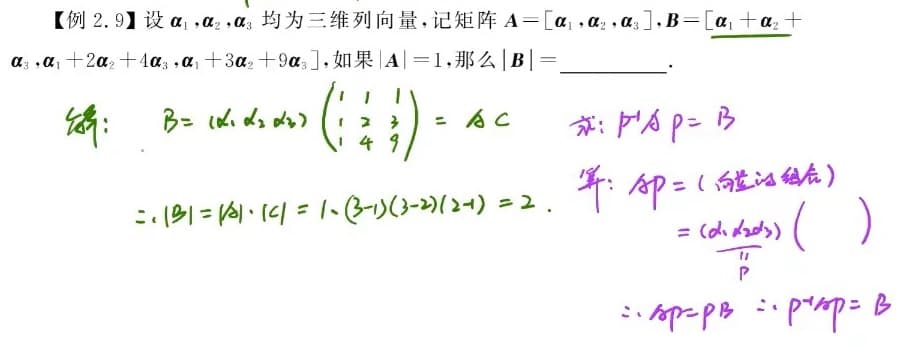 【例 2.9】设 α₁,α₂,α₃ 均为三维列向量,记矩阵 A=[α₁,α₂,α₃],B=[α₁+α₂+
α₃,α₁+2α₂+4α₃,α₁+3α₂+9α₃],如果|A|=1,那么|B|=________.
解: B=(α₁ α₂ α₃) (1 1 1
1 2 3
1 4 9) = AC
∴|B|=|A|·|C|=1·(3-1)(3-2)(2-1)=2.
求: P⁻¹AP=B
算: AP=(向量的组合)
=(α₁α₂α₃)( )
"
P
∴AP=PB ∴P⁻¹AP=B